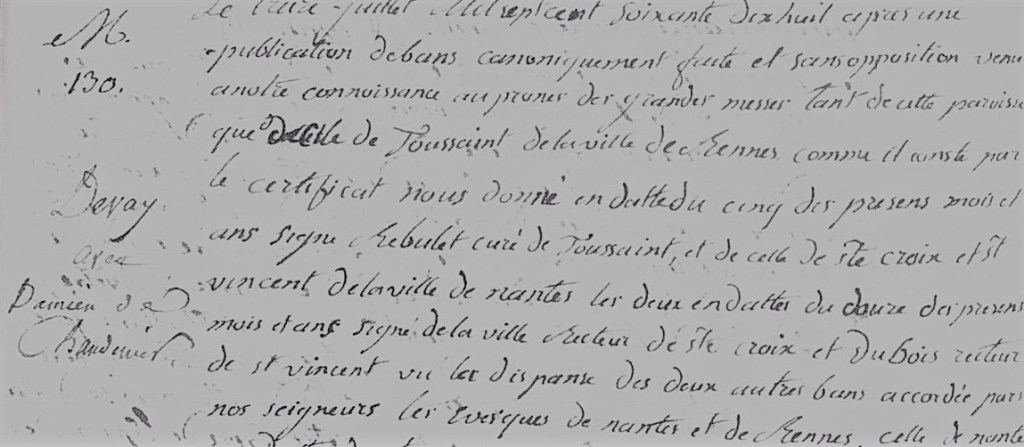 M.
130.
Devay
avec
Damien de
Chandenier
Le treize juillet Mil sept cent soixante dix huit apres une
publication de bans canoniquement faite et sans opposition venu
a notre connoissance au prones des grandes messes tant de cette paroisse
que de celle de Toussaint de la ville de Rennes comme il conste par
le certificat nous donné en datte du cinq des presens mois et
ans signe Rebulet curé de Toussaint, et de celle de ste croix et st
vincent de la ville de nantes les deux en dattes du douze des presens
mois et ans signé de la ville Recteur de ste croix et Dubois recteur
de st vincent vu les dispense des deux autres bans accordée par
nos seigneurs les Evesques de nantes et de Rennes, celle de nante